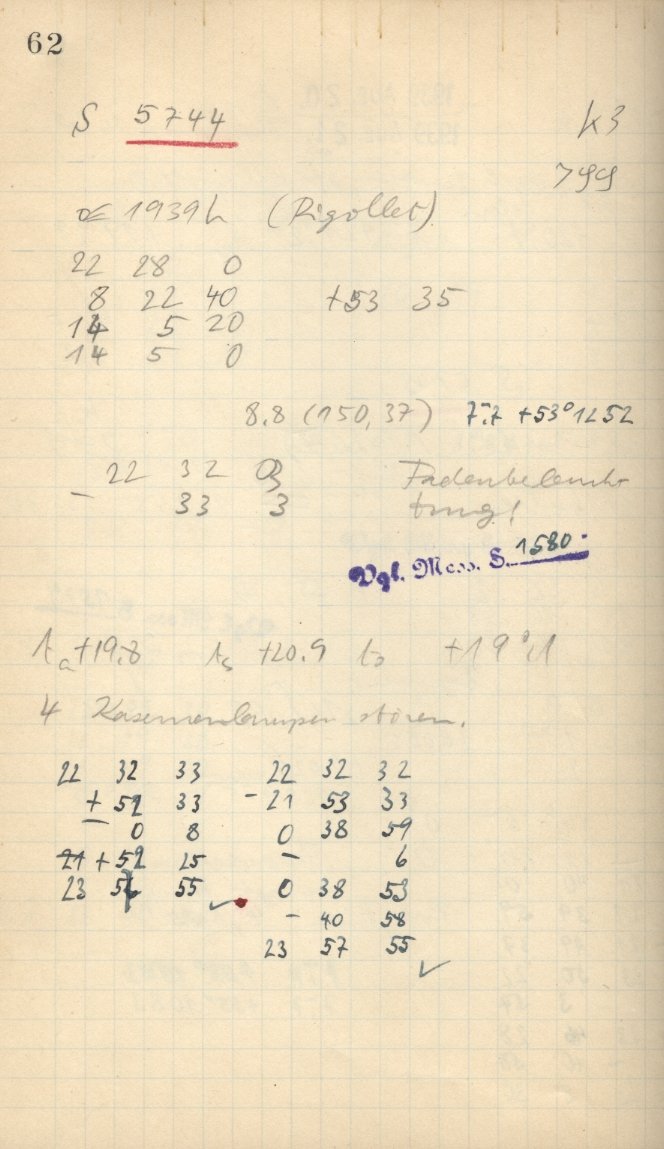 62
S 5744 K3
799
1939h (Rigollet)
22 28 0
8 22 40 +53 35
14 5 20
14 5 0
8.8 (150,37) 7.7 +53° 12 52
22 32 0
Fadenbeleuch-
- 33 3 tung!
Vgl. Mess. S. 1580
ta +19.8 ts +20.9 +19°.1
4 Kasernenlampen stören.
22 32 33 22 32 32
+ 52 33 - 21 53 33
- 0 8 0 38 59
+ 52 25 - 6
23 55 0 38 53
- 40 58
23 57 55